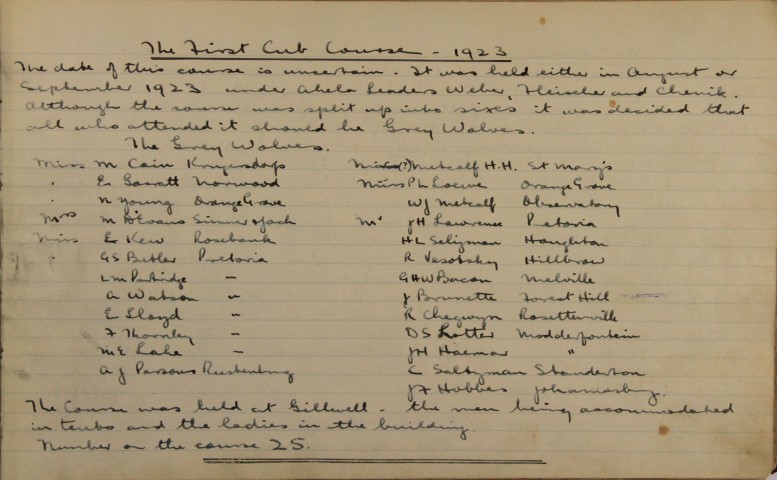 The First Cub Course - 1923
The date of this course is uncertain. It was held either in August or
September 1923 under Akela Leaders Weber, Fleischer and Chenik.
Although the course was split up into sixes it was decided that
all who attended it should be Grey Wolves.
The Grey Wolves.
Miss M Cain Krugersdorp
" E Garratt Norwood
" N Young Orange Grove
Mrs M B Evans Simmer & Jack
Miss E Kew Rosebank
" G S Butler Pretoria
L M Partridge "
A Watson "
E Lloyd "
F Thornley "
M E Lake "
A J Parsons Rustenburg
Miss (?) Metcalf H.H. St Mary's
Miss P L Loewe Orange Grove
W J Metcalf Observatory
Mr J H Lawrence Pretoria
H L Seligman Houghton
R Vesotsky Hillbrow
G H W Bacon Melville
J Brunette Forest Hill
R Chegwyn Rosettenville
D S Lotter Modderfontein
J H Haemar "
C Saltzman Standerton
J F Hobbes Johannesburg.
The Course was held at Gillwell - the men being accommodated
in tents and the ladies in the building.
Number on the course 25.